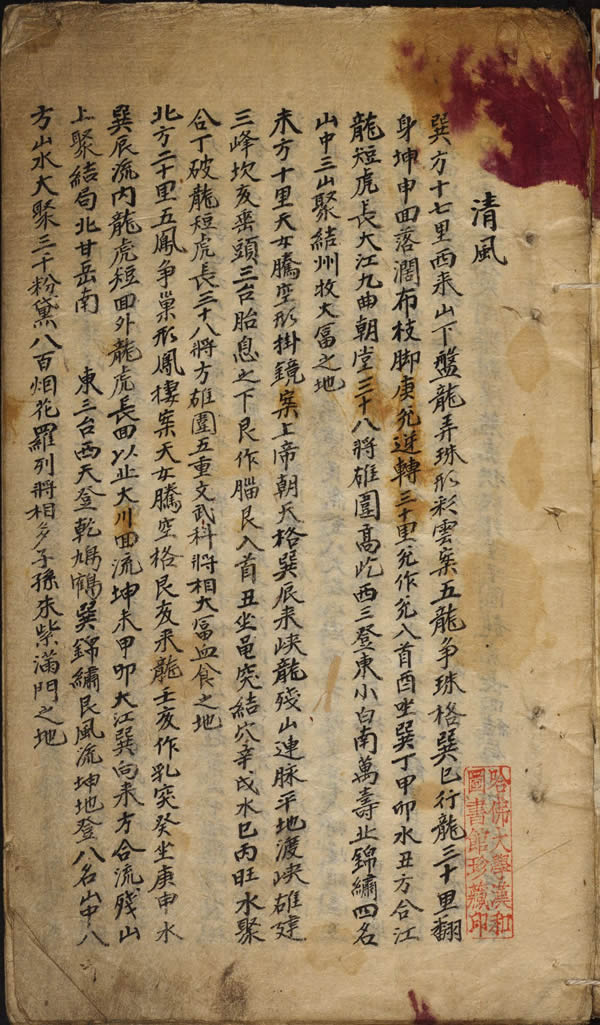 清風
巽方十七里西來山下盤龍弄珠形彩雲案五龍争珠格巽巳行龍三十里翻
身坤申囬落濶布枝脚庚兊逆轉三十里兊作兊入首酉坐巽丁甲卯水丑方合江
龍短虎長大江九曲朝堂三十八將雄圍高屹西三登東小白南萬壽北錦繡四名
山中三山聚結州牧大冨之地
未方十里天女騰空形掛鏡案上帝朝天格巽辰来峽龍殘山連脉平地渡峽雄建
三峰坎亥垂頭三台胎息之下艮作腦艮入首丑坐黾突結穴辛戌水巳丙旺水聚
合丁破龍短虎長三十八將方雄圍五重文武科將相大冨血食之地
北方二十里五鳳争巢形鳳樓案天女騰空格艮亥来龍壬亥作乳突癸坐庚申水
巽辰流内龍虎短囬外龍虎長囬以止大川囬流坤未甲卯大江巽向来方合流殘山
上聚結局北甘岳南 東三台西天登乾鳩鶴巽錦繡艮風流坤地登八名山中八
方山水大聚三千粉黛八百烟花羅列將相多子孫朱紫滿門之地
哈佛大學漢和
圖書館珍藏印